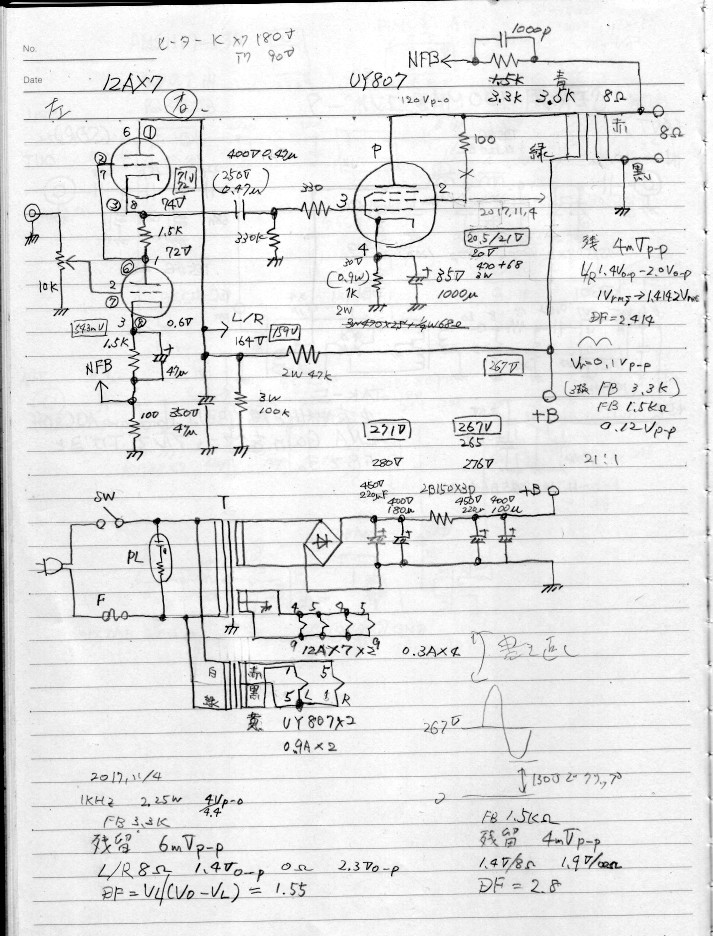 No.
Date
ヒーターK X7 180V
T7 90V
1000p
NFB
12AX7
UY807
1.5K
3.3K
青
3.5K
8Ω
120Vp-o
左
右
赤
緑
黒
8Ω
6 ①
P
100
② 7
400V 0.42μ
(250V 0.47μ)
71V
72
74V
③ 8
330
3
2
2017,11,4
330K
1.5K
72V
1
⑥
4
20.5/21V
20V
30V
(0.9W)
1K
2W
470+68
3W
35V
1000μ
10K
2
⑦
残 4mVp-p
L/R 1.4Vo-p-2.0Vo-p
DF=2.414
543mV
3 ⑧
0.6V
L/R
164V
159V
1.5K
47μ
NFB
2W 47K
267V
Vn=0.1Vp-p
FB 3.3K)
FB 1.5KΩ
0.12Vp-p
21:1
+B
100
350V
47μ
3W
100K
271V
280V
267V
265
276V
450V
220μF
400V
180μ
450V
220μ
400V
100μ
+B
SW
T
PL
F
4 5 4 5
9 9
12AX7×2 0.3A×4
白
緑
赤
黒
黄
1 5
5 L 1 R
UY807×2
0.9A×2
267V
2017,11/4
1KHz 2.25W 4Vp-o
4.4
FB 3.3K
残留 6mVp-p
L/R 8Ω 1.4Vo-p 0Ω 2.3Vo-p
DF=VL/(Vo-VL) = 1.55
FB 1.5KΩ
残留 4mVp-p
1.4V/8Ω 1.9V/∞Ω
DF = 2.8